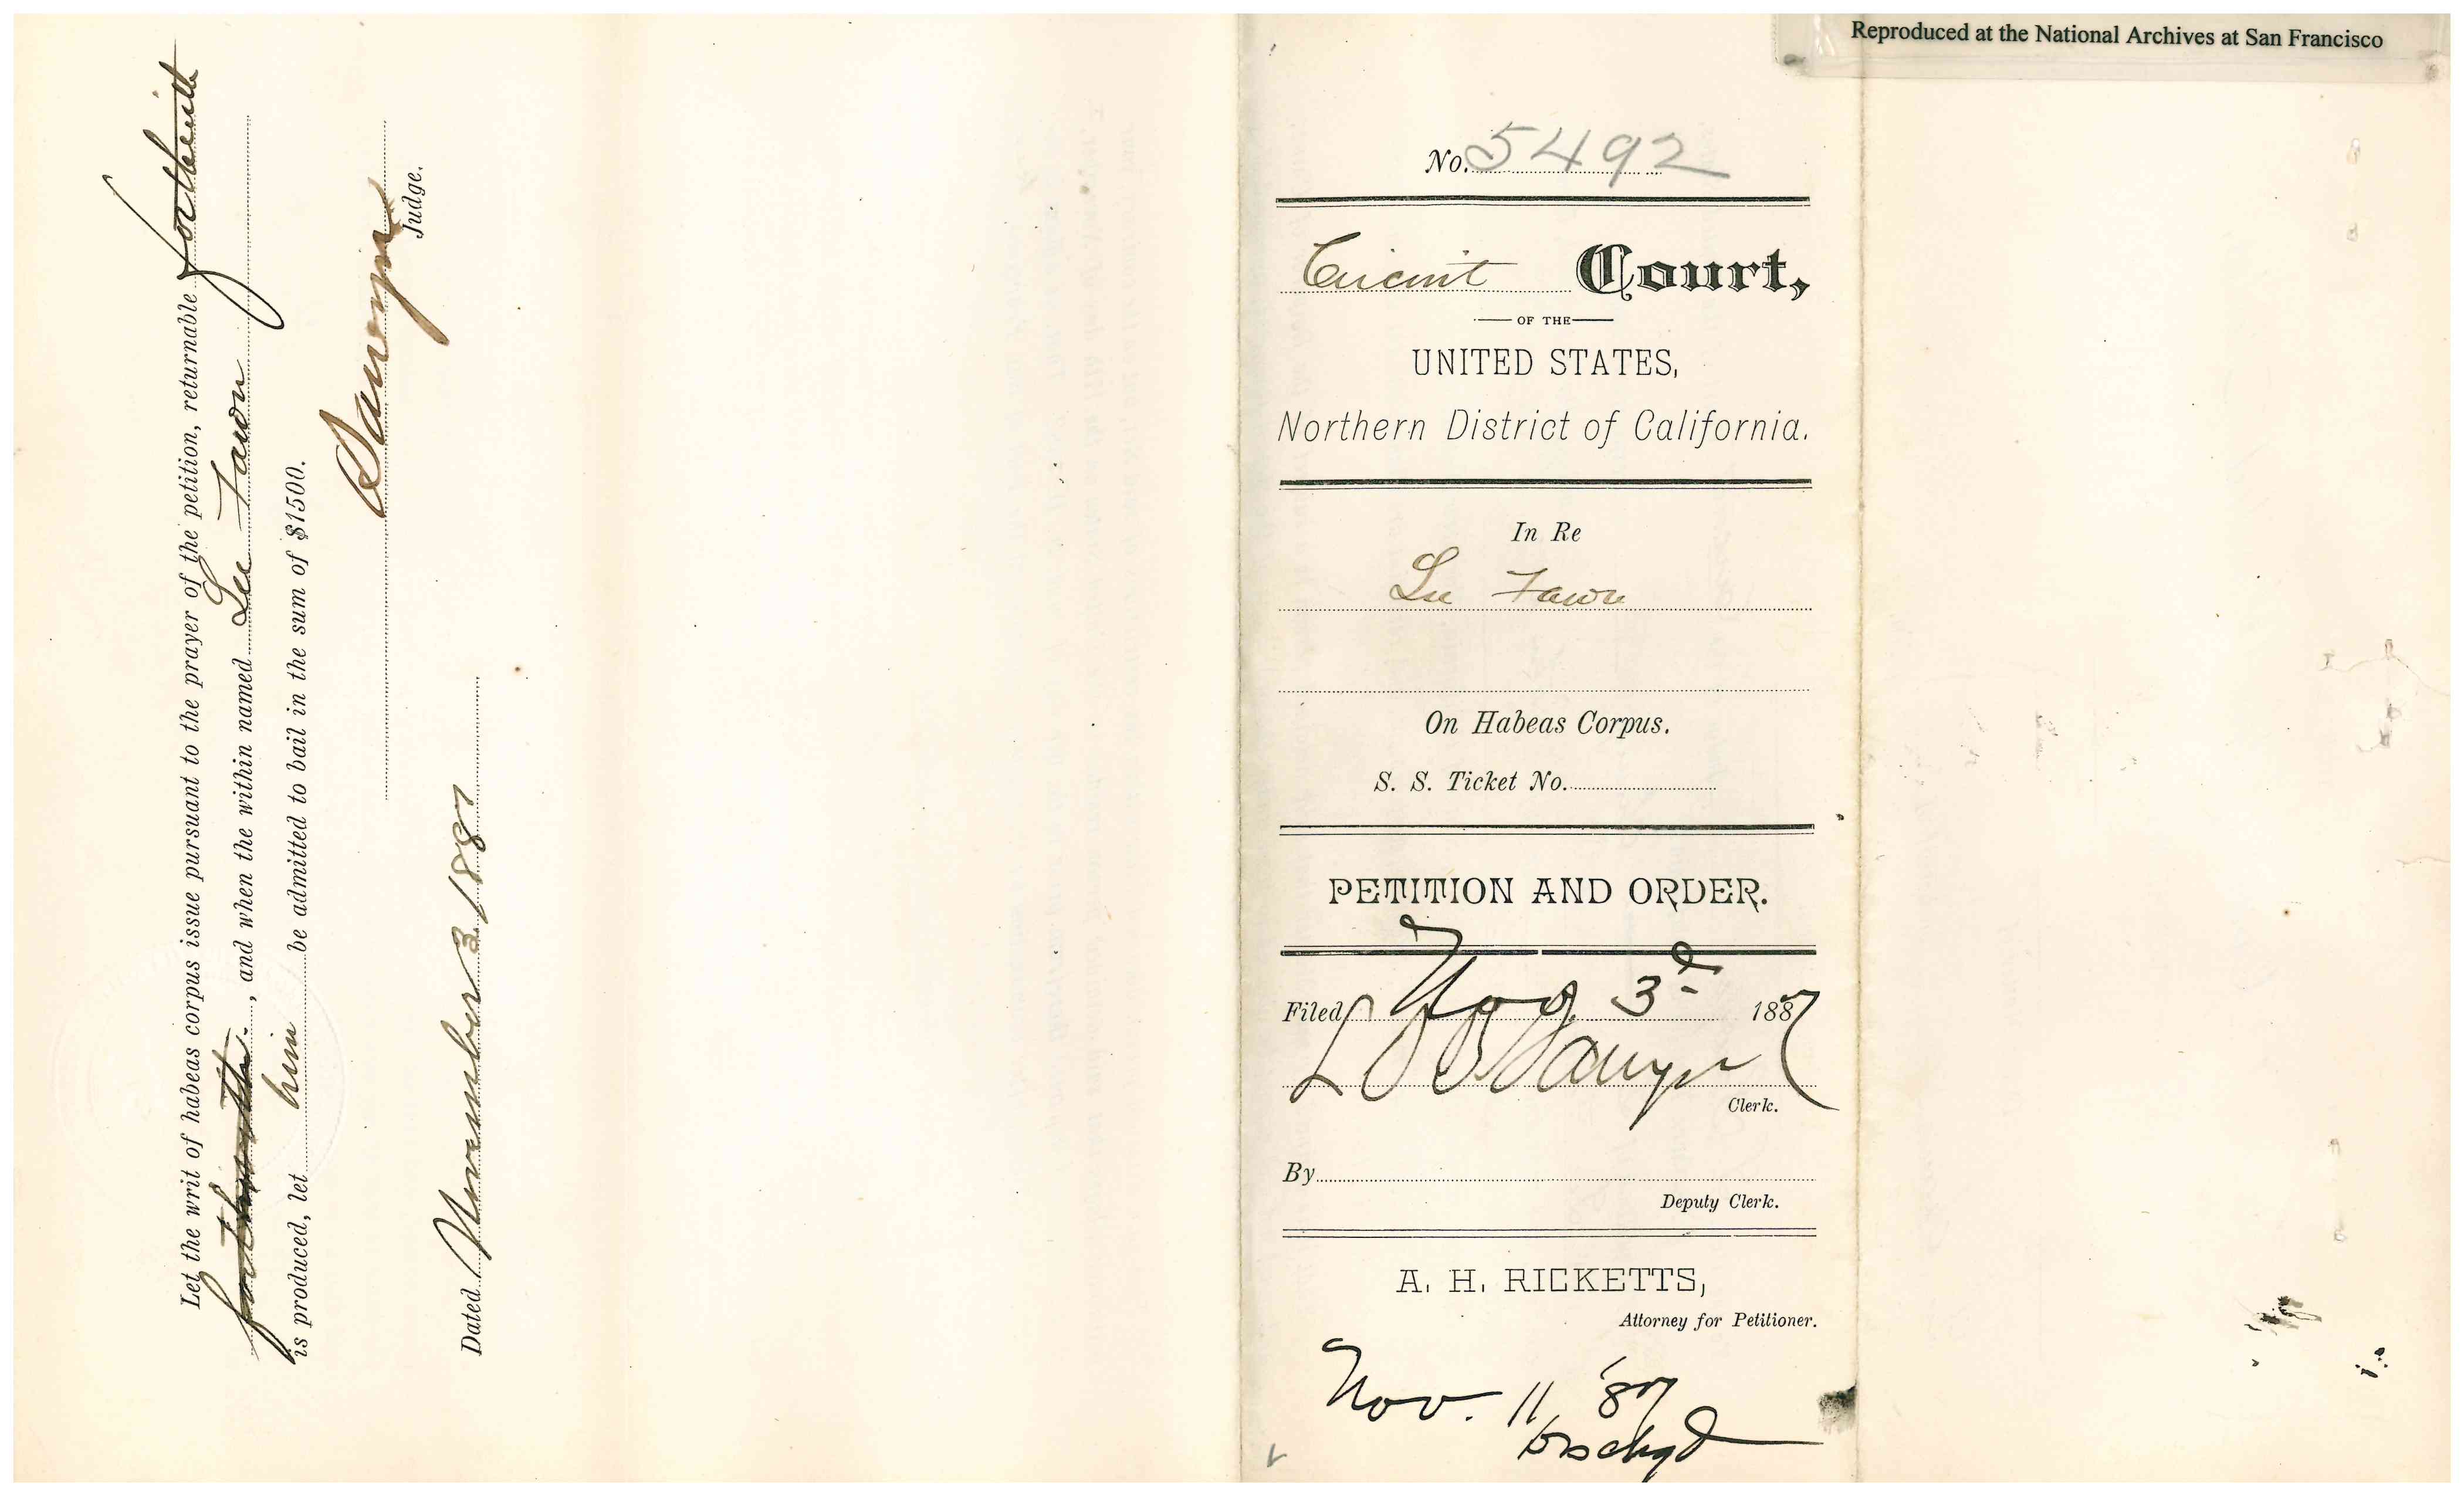 Let the writ of habeas corpus issue pursuant to the prayer of the petition, returnable forthwith
forthwith., and when the within named Lee Fawn
is produced, let him be admitted to bail in the sum of $1500.
Sawyer
Judge.
Dated November 3 1887
Reproduced at the National Archives at San Francisco
No. 5492
Circuit Court,
OF THE
UNITED STATES,
Northern District of California.
In Re
Lee Fawn
On Habeas Corpus.
S. S. Ticket No.
PETITION AND ORDER.
Filed Nov. 3d 1887
L S B Sawyer
Clerk.
By
Deputy Clerk.
A. H. RICKETTS,
Attorney for Petitioner.
Nov. 11 '87
Dischgd